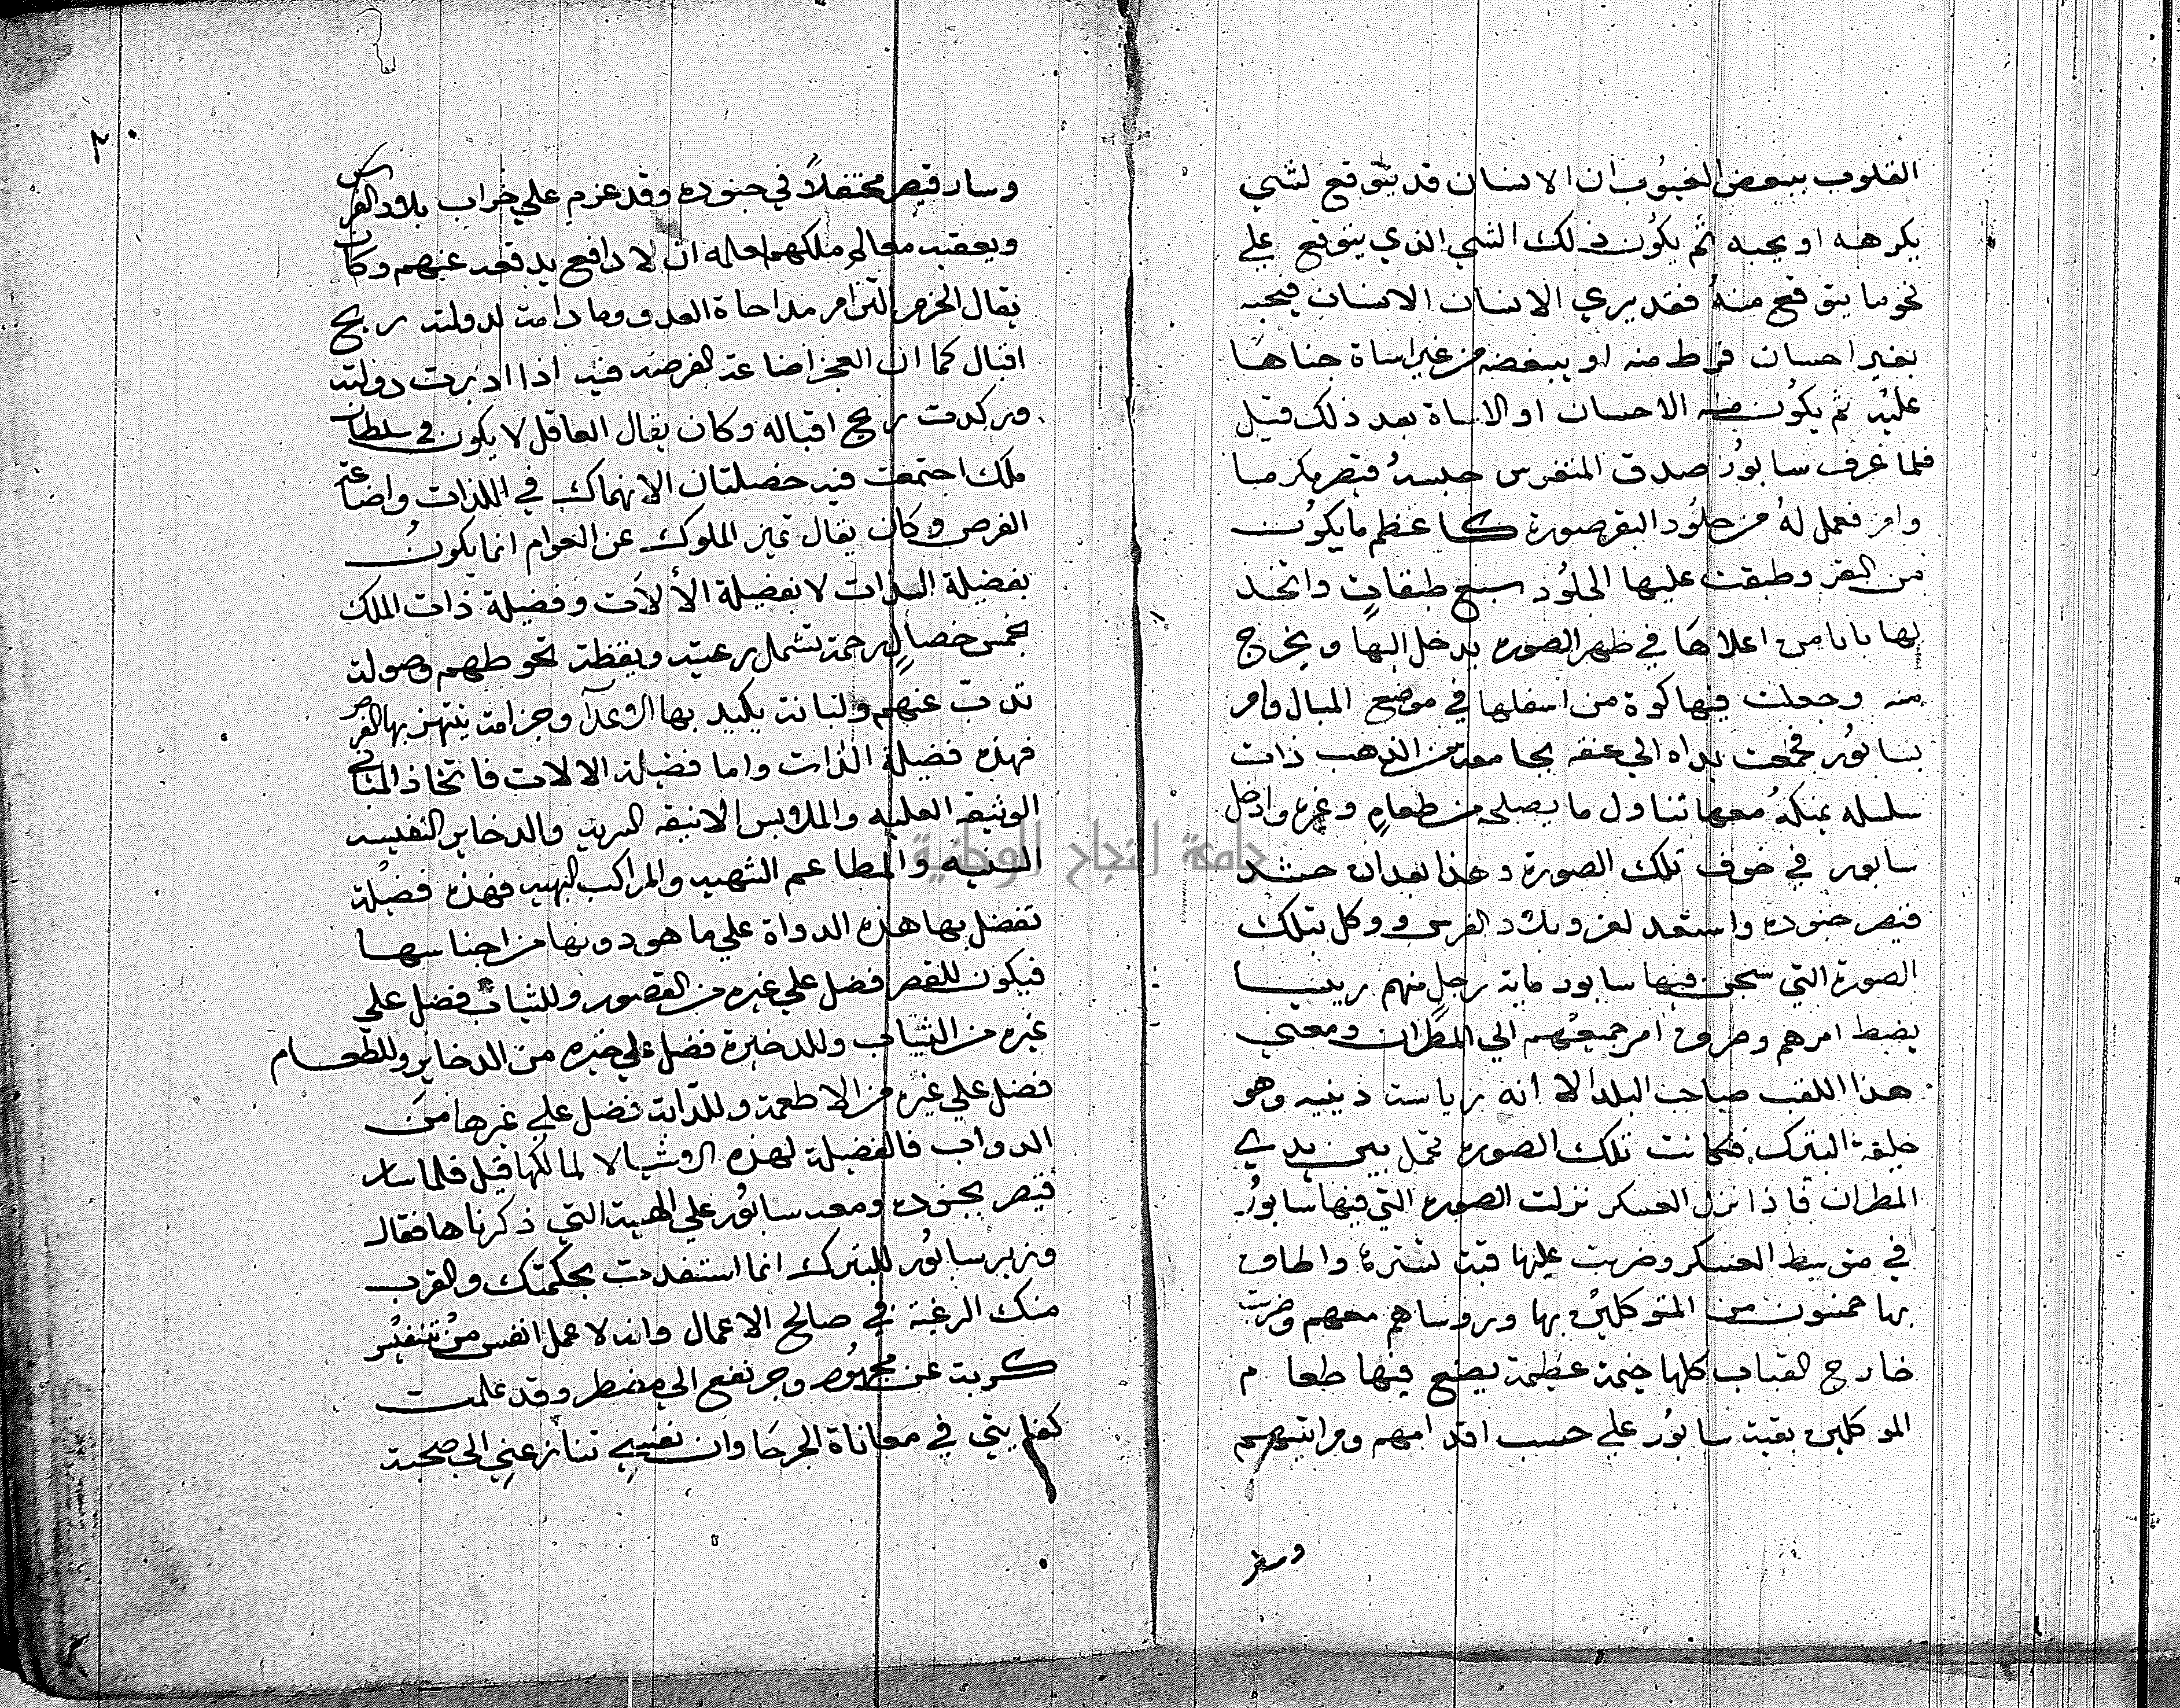 القلوب ببعض الغيوب ان الانسان قد يتوقع لشي
يكرهه او يحبه ثم يكون ذلك الشي الذي يتوقع علي
نحو ما يتوقع منه فقد يري الانسان الانسان فيحبه
بغير احسان فرط منه او يبغضه من غير اساة جناها
عليه ثم يكون منه الاحسان او الاساة بعد ذلك قيل
فلما عرف سابور صدق المتفرس حبسه قيصر مكرما
وامر فعمل له من جلود البقر صورة كاعظم ما يكون
من البقر وطبقت عليها الجلود سبع طبقات واتخذ
لها بابا من اعلاها في ظهر الصوره يدخل اليها ويخرج
منه وجعلت فيها كوة من اسفلها في موضع المبال وامر
بسابور فجمعت يداه الي عنقه بجامعة من الذهب ذات
سلسله يمكنه معها تناول ما يصلحه من طعام وغيره وادخل
سابور في جوف تلك الصورة وهذا بعد ان حشد
قيصر جنوده واستعد لغزو بلاد الفرس ووكل بتلك
الصورة التي سجن فيها سابور ماية رجل منهم رييسا
يضبط امرهم وصرف امر جميعهم الي المطران ومعني
هذا اللقب صاحب البلد الا انه رياسة دينيه وهو
خليفة البترك فكانت تلك الصوره تحمل بين يدي
المطران فاذا نزل العسكر نزلت الصوره التي فيها سابور
في متوسط العسكر وضربت عليها قبة تسترها واطاف
بها خمسون من المتوكلين بها وروساهم معهم وضربت
خارج القباب كلها خيمة عظيمة يصنع فيها طعام
الموكلين بقبة سابور علي حسب اقدامهم ومراتبهم
وسار
وسار قيصر محتفلاً في جنوده وقد عزم علي خراب بلاد الفرس
ويعقبه معالم ملكهم لعلمه ان لا دافع يدفعه عنهم وكان
يقال الحزم التزام مداجاة العدو وما دامت لدولته ريح
اقبال كما ان العجز اضاعة الفرصه فيه اذا ادبرت دولته
وركدت ريح اقباله وكان يقال العاقل لا يكون في سلطان
ملك اجتمعت فيه خصلتان الانهماك في اللذات واضاعة
الفرص وكان يقال تميز الملوك عن العوام انما يكون
بفضيلة الذات لا بفضيلة الألات وفضيلة ذات الملك
بخمس خصال رحمة تشمل رعيته ويقظة تحوطهم وصولة
تذب عنهم ولبانة يكيد بها الاعدآ وحزامة ينتهز بها الفرص
فهذه فضيلة الذات واما فضيلة الالات فاتخاذ المباني
الوثيقه العليه والملابس الانيقه السريه والدخاير النفيسه
السنيه والمطاعم الشهيه والمراكب البهيه فهذه فضيلة
تفضل بها هذه الدواة علي ما هو دونها من اجناسها
فيكون للقصر فضل علي غيره من القصور وللثياب فضل علي
غيره من الثياب وللدخيرة فضل علي غيره من الدخاير وللطعام
فضل علي غيره من الاطعمة وللدابة فضل علي غيرها من
الدواب فالفضيلة لهذه الاشيا لا لمالكها قيل فلما سار
قيصر بجنوده ومعه سابور علي الهيية التي ذكرناها فقال
وزير سابور للبترك انما استفدت بحكمتك والقرب
منك الرغبة في صالح الاعمال وانه لا عمل انفس من تنفيس
كربة عن مجهود وجر نفع الي مضطر وقد علمت
كفايتي في معاناة الجرحا وان نفسي تنازعني الي صحبة